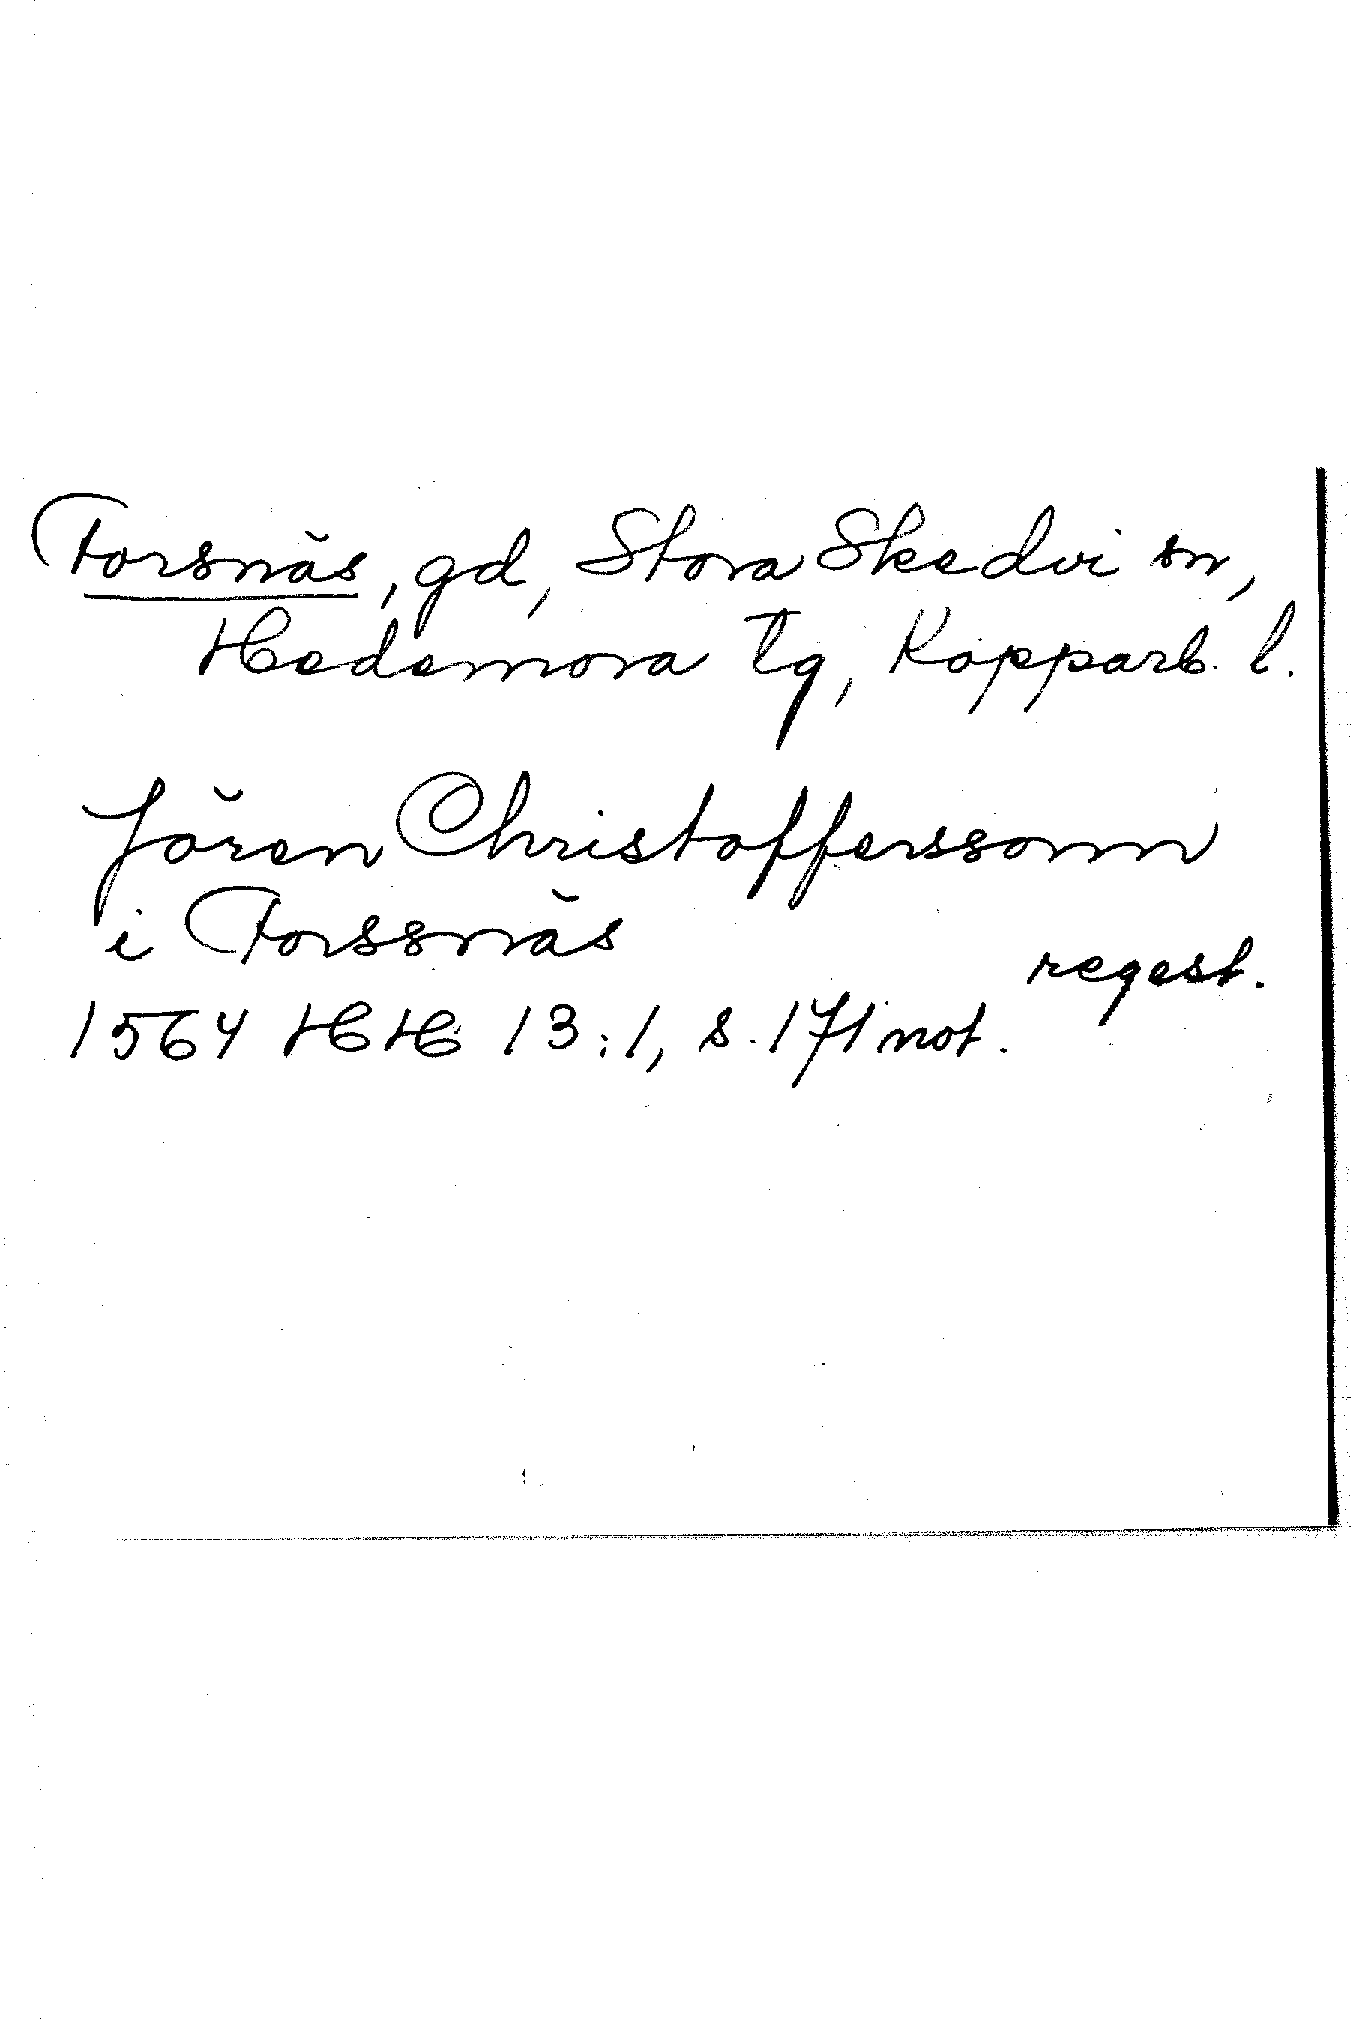 Forsnäs, gd, Stora Skedvi sn,
Hedemora tg, Kopparb. l.
Jören Christofferssonn
i Forssnäs
regest.
1564 HH 13:1, s. 171 not.